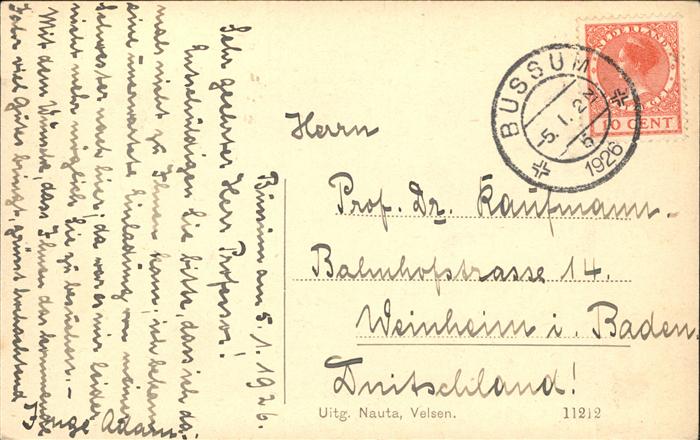 Bussum am 5.1.1926.
Sehr geehrter Herr Professor!
Entschuldigen Sie bitte, dass ich da-
mals nicht zu Ihnen kam; ich bekam
eine unerwartete Einladung von meiner
Schwester nach hier; da war es mir leider
nicht mehr möglich Sie zu besuchen. –
Mit dem Wunsche, dass Ihnen das kommende
Jahr viel Gutes bringt, grüsst hochachtend
Adam.
NEDERLAND
10 CENT
BUSSUM
5.1.2N
5
1926
Herrn
Prof. Dr. Kaufmann.
Bahnhofstrasse 14.
Weinheim i. Baden.
Deutschland!
Uitg. Nauta, Velsen.
11212